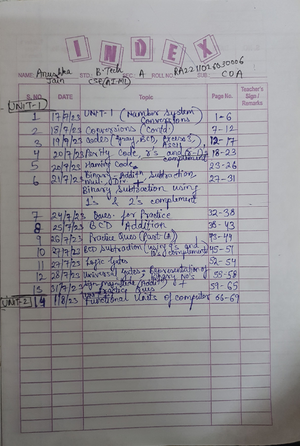 INDEX
NAME: Anushka Jain STD.: B-Tech CSE(AI-ML) SEC.: A ROLL NO.: RA2211026030006 SUB.: COA
S. NO. DATE Topic Page No. Teacher's Sign / Remarks
UNIT-1
1 17/7/23 UNIT-1 (Number System Conversions) 1-6
2 18/7/23 Conversions (Contd.) 7-12
3 19/7/23 Codes (Gray, BCD, Excess3, ASCII) 12-17
4 20/7/23 Parity Code, r's and (r-1)'s complement 18-23
5 20/7/23 Hamming Code 23-26
6 21/7/23 Binary Addith Subtraction 27-31
Mul. Div.
Binary Subtraction using
1's & 2's complement
7 24/7/23 Ques. for Practice 32-38
8 25/7/23 BCD Addition 38-43
9 26/7/23 Practice Ques (Part-A) 43-49
10 27/7/23 BCD Subtraction using 9's and 10's complement 45-51
11 27/7/23 Logic Gates 52-54
12 28/7/23 Universal Gates & Representation of Binary No's 55-58
13 31/7/23 Sign Magnitude 59-65
Practice Ques
UNIT-2
14 1/8/23 Functional Units of computer 66-67